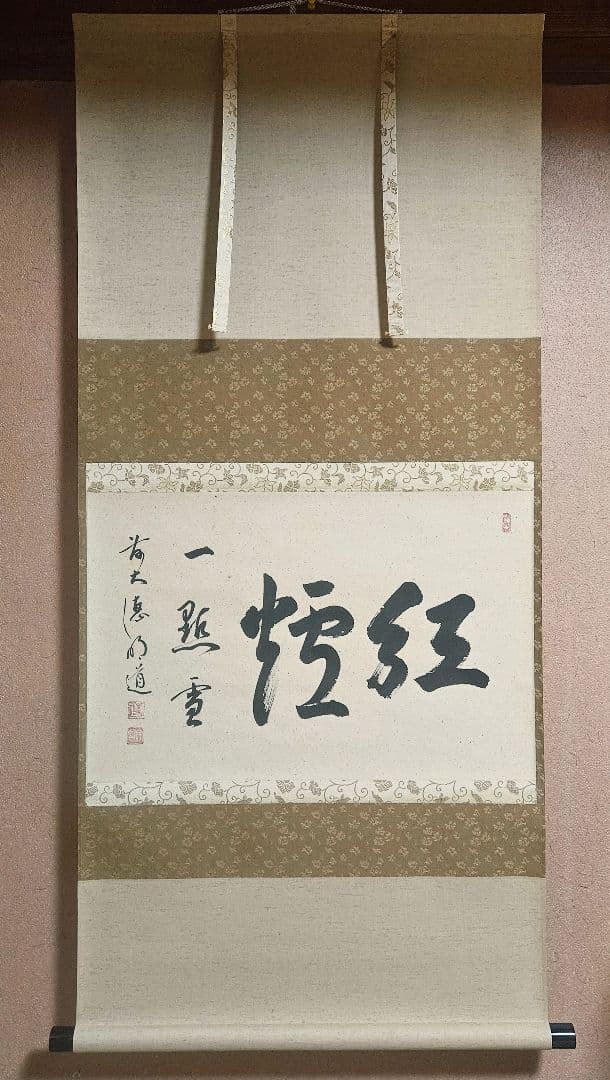 紅爐
一點雪
前大徳明道